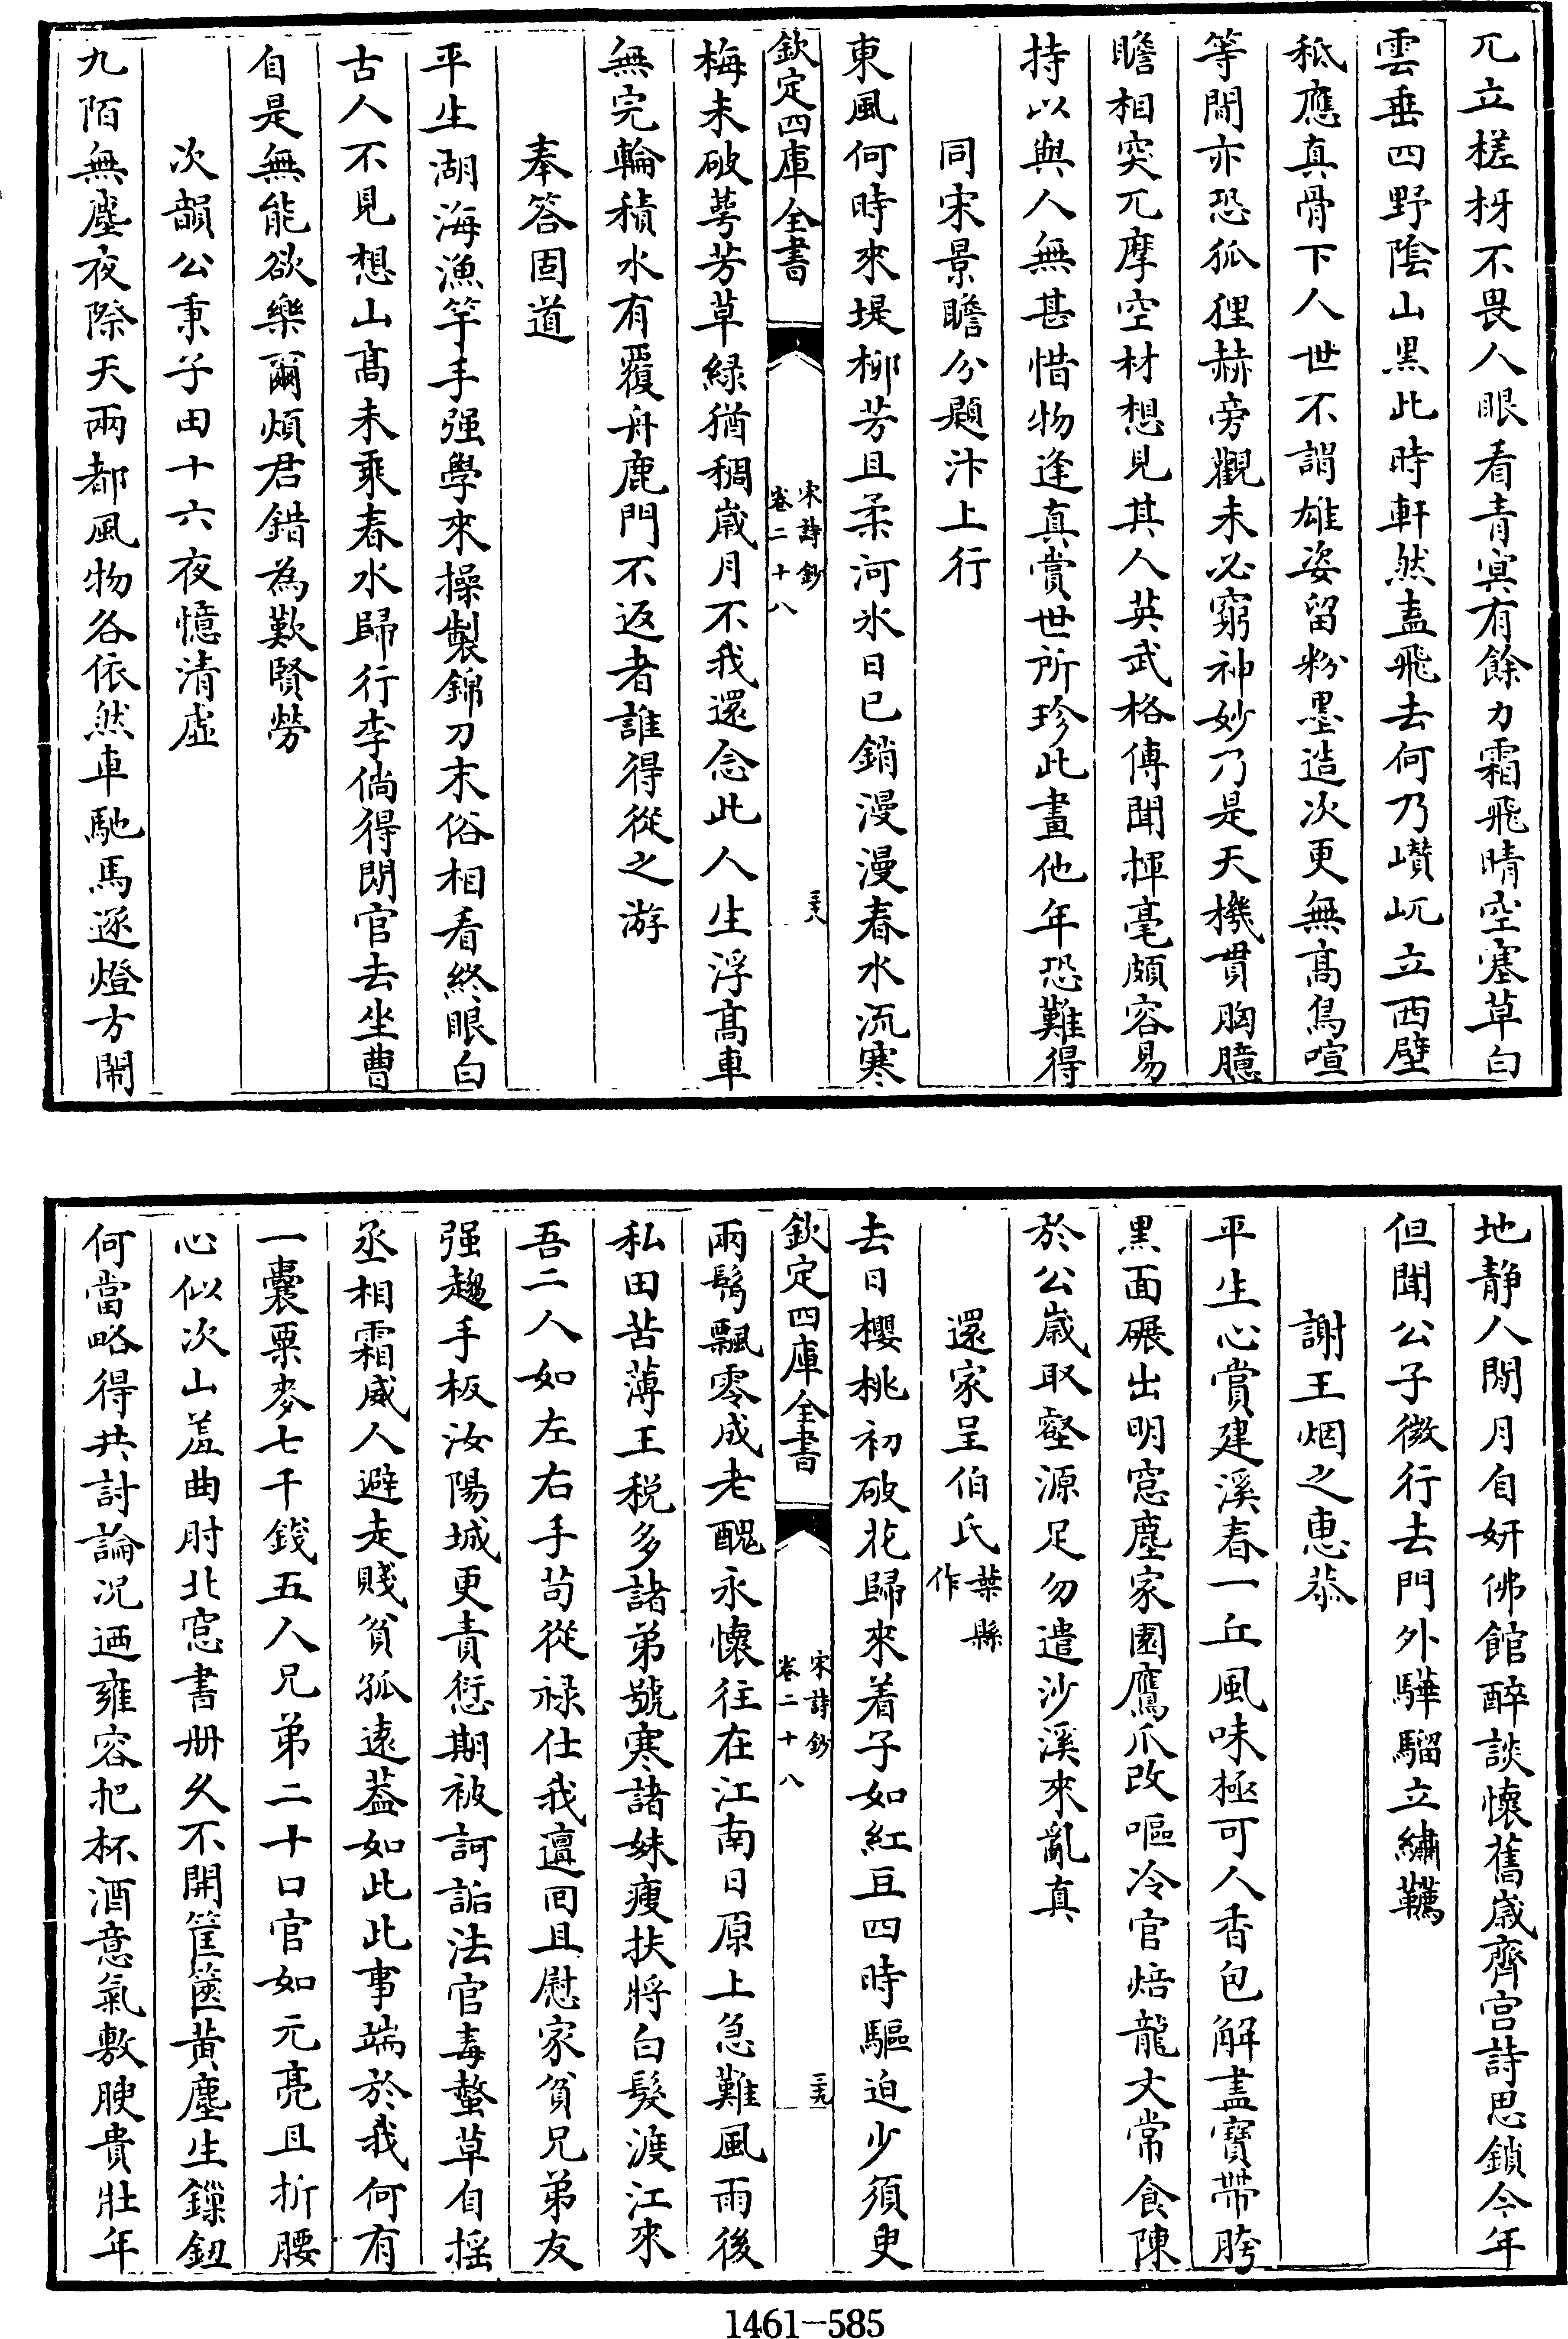 兀立槎枒不畏人眼看青冥有餘力霜飛晴空塞草白
雲垂四野陰山黑此時軒然盍飛去何乃巑岏立西壁
秪應真骨下人世不謂雄姿留粉墨造次更無高鳥喧
等閒亦恐狐狸赫旁觀未必窮神妙乃是天機貫胸臆
瞻相突兀摩空材想見其人英武格傳聞揮毫頗容易
持以與人無甚惜物逢真賞世所珍此畫他年恐難得
同宋景瞻分題汴上行
東風何時來堤柳芳且柔河氷日已銷漫漫春水流寒
欽定四庫全書
宋詩鈔
卷二十八
三十八
梅未破萼芳草緑猶稠歲月不我還念此人生浮髙車
無完輪積水有覆舟鹿門不返者誰得從之游
奉答固道
平生湖海漁竿手强學來操製錦刀末俗相看終眼白
古人不見想山髙未乘春水歸行李倘得閒官去坐曹
自是無能欲樂爾煩君錯為歎賢勞
次韻公秉子由十六夜憶清虛
九陌無塵夜際天兩都風物各依然車馳馬逐燈方閙
地静人閒月自妍佛館醉談懷舊歲齊宫詩思鎖今年
但聞公子微行去門外驊騮立繡韉
謝王烟之惠茶
平生心賞建溪春一丘風味極可人香包解盡寶帶胯
黑面碾出明窓塵家園鷹爪改嘔冷官焙龍文常食陳
於公歲取壑源足勿遣沙溪來亂真
還家呈伯氏葉縣作
去日櫻桃初破花歸來着子如紅豆四時驅迫少須臾
欽定四庫全書
宋詩鈔
卷二十八
三十九
兩鬂飄零成老醜永懷往在江南日原上急難風雨後
私田苦薄王税多諸弟號寒諸妹瘦扶將白髮渡江來
吾二人如左右手茍從禄仕我邅囘且慰家貧兄弟友
强趨手板汝陽城更責愆期被訶詬法官毒螫草自摇
丞相霜威人避走賤貧孤遠葢如此此事端於我何有
一囊粟麥七千錢五人兄弟二十口官如元亮且折腰
心似次山羞曲肘北窓書册久不開筐篋黄塵生鏁鈕
何當略得共討論况迺雍容把杯酒意氣敷腴貴壯年
1461—585